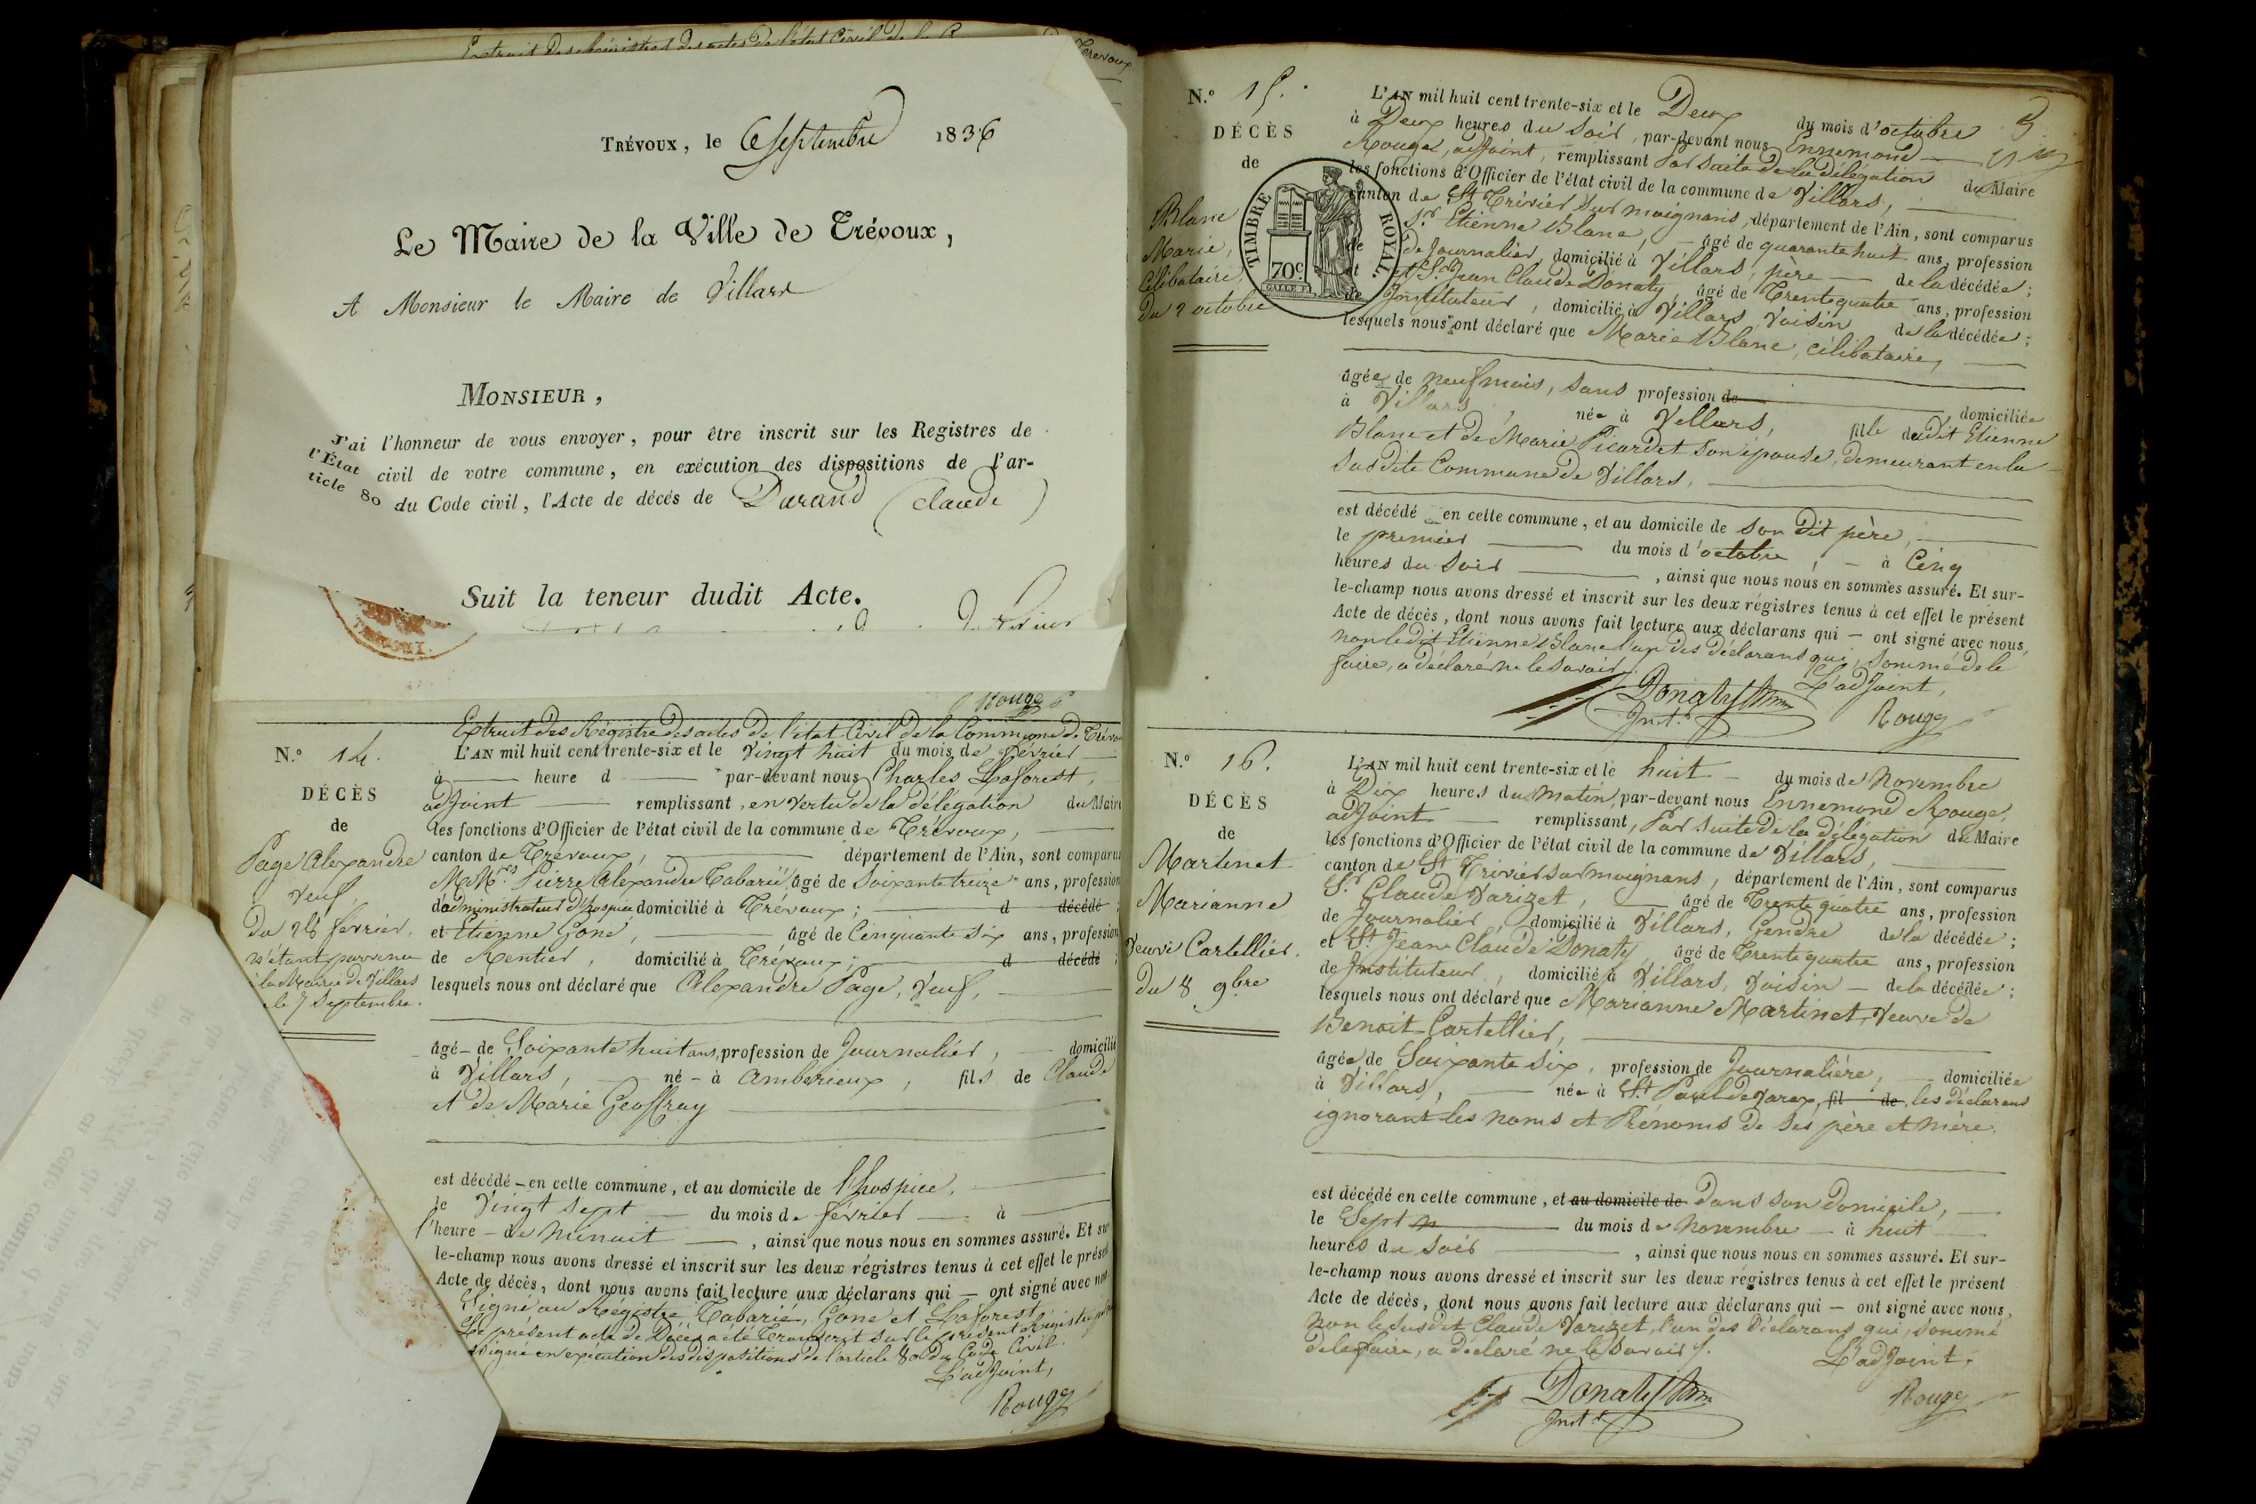 Trévoux, le 6 Septembre 1836
Le Maire de la Ville de Trévoux,
A Monsieur le Maire de Villars
Monsieur,
J'ai l'honneur de vous envoyer, pour être inscrit sur les Registres de
l'État civil de votre commune, en exécution des dispositions de l'ar-
ticle 80 du Code civil, l'Acte de décès de Durand (Claude)
Suit la teneur dudit Acte.
Rouge
Extrait des Régistre des actes de l'état Civil de la Commune de Trévoux
N.º 14.
DÉCÈS
de
Page Alexandre
veuf,
du 28 février,
n'étant parvenu
à la Mairie de Villars
le 7 Septembre.
L'AN mil huit cent trente-six et le vingt huit du mois de février
à heure d par-devant nous Charles Laforest,
adjoint remplissant, en vertu de la délégation du Maire
les fonctions d'Officier de l'état civil de la commune de Trévoux,
canton de Trévoux, département de l'Ain, sont comparus
M.M.rs Pierre Alexandre Tabarié, âgé de Soixante treize ans, profession
d'administrateur d'hospice domicilié à Trévoux; d décédé;
et Etienne Gone, âgé de Cinquante six ans, profession
de Rentier, domicilié à Trévoux; d décédé;
lesquels nous ont déclaré que Alexandre Page, veuf,
âgé de Soixante huit ans, profession de Journalier, domicilié
à Villars, né à Amberieux, fils de Claude
et de Marie Geoffray
est décédé en cette commune, et au domicile de l'hospice,
le vingt sept du mois de février à
l'heure de minuit, ainsi que nous nous en sommes assuré. Et sur
le-champ nous avons dressé et inscrit sur les deux régistres tenus à cet effet le présent
Acte de décès, dont nous avons fait lecture aux déclarans qui — ont signé avec nous
Signé au Régistre, Tabarié, Gone et Laforest.
Le présent acte de Décès a été transcrit sur le présent Régistre
signé en exécution des dispositions de l'article 80 du Code Civil.
L'adjoint,
Rouge
N.º 15.
DÉCÈS
de
Blanc
Marie,
Célibataire,
du 2 octobre
TIMBRE ROYAL.
70c.
L'AN mil huit cent trente-six et le Deux du mois d'octobre
à Deux heures du Soir, par-devant nous Ennemond
Rouge, adjoint, remplissant Par Suite de la délégation du Maire
les fonctions d'Officier de l'état civil de la commune de Villars,
canton de St Trivier sur moignans, département de l'Ain, sont comparus
S.r Etienne Blanc, âgé de quarante huit ans, profession
de Journalier, domicilié à Villars, père de la décédée;
et S.r Jean Claude Donaty, âgé de Trente quatre ans, profession
de Instituteur, domicilié à Villars, Voisin de la décédée;
lesquels nous ont déclaré que Marie Blanc, célibataire,
âgée de neuf mois, sans profession de domiciliée
à Villars née à Villars, fille dudit Etienne
Blanc et de Marie Picardet son épouse, demeurant en la
Susdite Commune de Villars,
est décédé en cette commune, et au domicile de son dit père,
le premier du mois d'octobre, à Cinq
heures du Soir, ainsi que nous nous en sommes assuré. Et sur-
le-champ nous avons dressé et inscrit sur les deux régistres tenus à cet effet le présent
Acte de décès, dont nous avons fait lecture aux déclarans qui — ont signé avec nous,
non ledit Etienne Blanc l'un des déclarans qui, Sommé de le
faire, a déclaré ne le Savoir.
L'adjoint,
Donaty
Inst.r
Rouge
N.º 16.
DÉCÈS
de
Martinet
Marianne
Veuve Cartellier.
du 8 9bre
L'AN mil huit cent trente-six et le huit du mois de Novembre
à Dix heures du Matin, par-devant nous Ennemond Rouge,
adjoint remplissant, Par Suite de la délégation du Maire
les fonctions d'Officier de l'état civil de la commune de Villars,
canton de St Trivier sur moignans, département de l'Ain, sont comparus
S.r Claude Varizet, âgé de Trente quatre ans, profession
de Journalier, domicilié à Villars, Gendre de la décédée;
et S.r Jean Claude Donaty, âgé de Trente quatre ans, profession
de Instituteur, domicilié à Villars, Voisin de la décédée;
lesquels nous ont déclaré que Marianne Martinet, Veuve de
Benoit Cartellier,
âgée de Soixante Six, profession de Journalière, domiciliée
à Villars, née à St Paul de Varax, fil de, les déclarans
ignorant les noms et Prénoms de Ses père et mère.
est décédé en cette commune, et au domicile de dans son domicile,
le Sept du mois de Novembre à huit
heures du Soir, ainsi que nous nous en sommes assuré. Et sur-
le-champ nous avons dressé et inscrit sur les deux régistres tenus à cet effet le présent
Acte de décès, dont nous avons fait lecture aux déclarans qui — ont signé avec nous,
Non le susdit Claude Varizet, l'un des déclarans qui, Sommé
de le faire, a déclaré ne le Savoir.
L'adjoint,
Donaty
Inst.r
Rouge